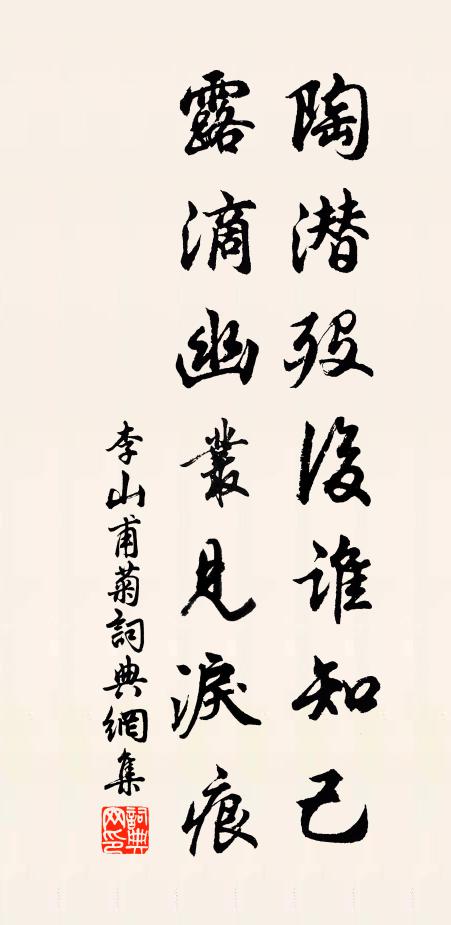 陶潜殁後谁知己
露滴幽叢見淚痕
李山甫菊詞典網集
詞典網印